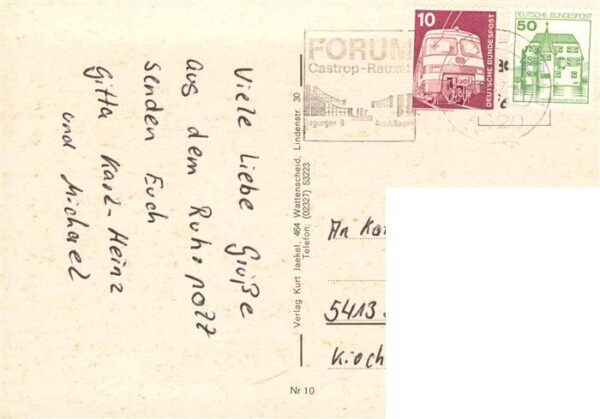 Viele liebe Grüße
aus dem Ruhrpott
senden Euch
Gitta Karl-Heinz
und Michael
Verlag Kurt Jaekel, 464 Wattenscheid, Lindenstr. 30
Telefon, (02327) 53223
Nr 10
FORUM
Castrop-Rauxel
für
Tagungen &
10
DEUTSCHE BUNDESPOST
DEUTSCHE BUNDESPOST
50
An
5413
Kirch